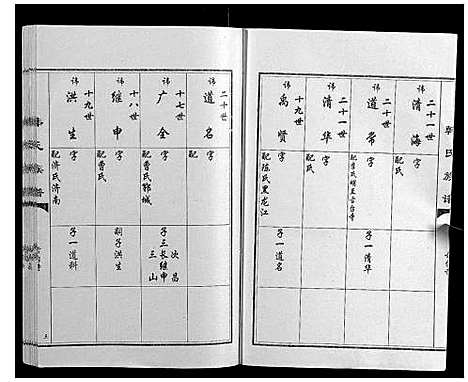 二十一世
讳 清海
字
配氏
二十世
讳 道常
字
子一清华
二十一世
讳 清华
字
配氏
讳 禹贤
字
配陈氏黑龙江
子一道名
二十世
讳 道名
字
配
十七世
讳 广全
字
配曹氏鄆城
子三长继申
次昌
三山
十八世
讳 继申
字
配曹氏
嗣子洪生
十九世
讳 洪生
字
配济氏济南
子一道科